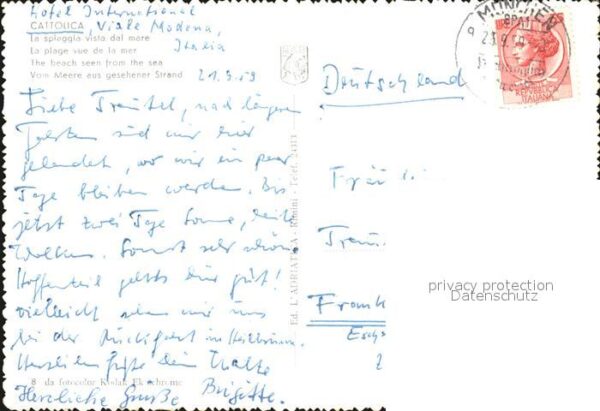 Hotel International
CATTOLICA, Viale Modena,
La spiaggia vista dal mare Italia
La plage vue de la mer
The beach seen from the sea
Vom Meere aus gesehener Strand
21.9.59
Liebe Trautel, nach längerem
sind wir hier
gelandet, wo wir ein paar
Tage bleiben werden. Bis
jetzt zwei Tage Sonne, heute
Wolken. Sonst sehr schön.
Hoffentlich gehts Dir gut!
Vielleicht sehen wir uns
bei der Rückfahrt in Heilbronn.
Herzliche Grüße Dein Walter
8 da fotocolor Kodak Ektachrome
Herzliche Grüße Brigitte.
Ed. L'ADRIATICA - Rimini - Telef. 24313
MÜNCHEN
REPUBBLICA
ITALIANA
Deutschland
Fräulein
Trau
Frank
Esch
privacy protection
Datenschutz